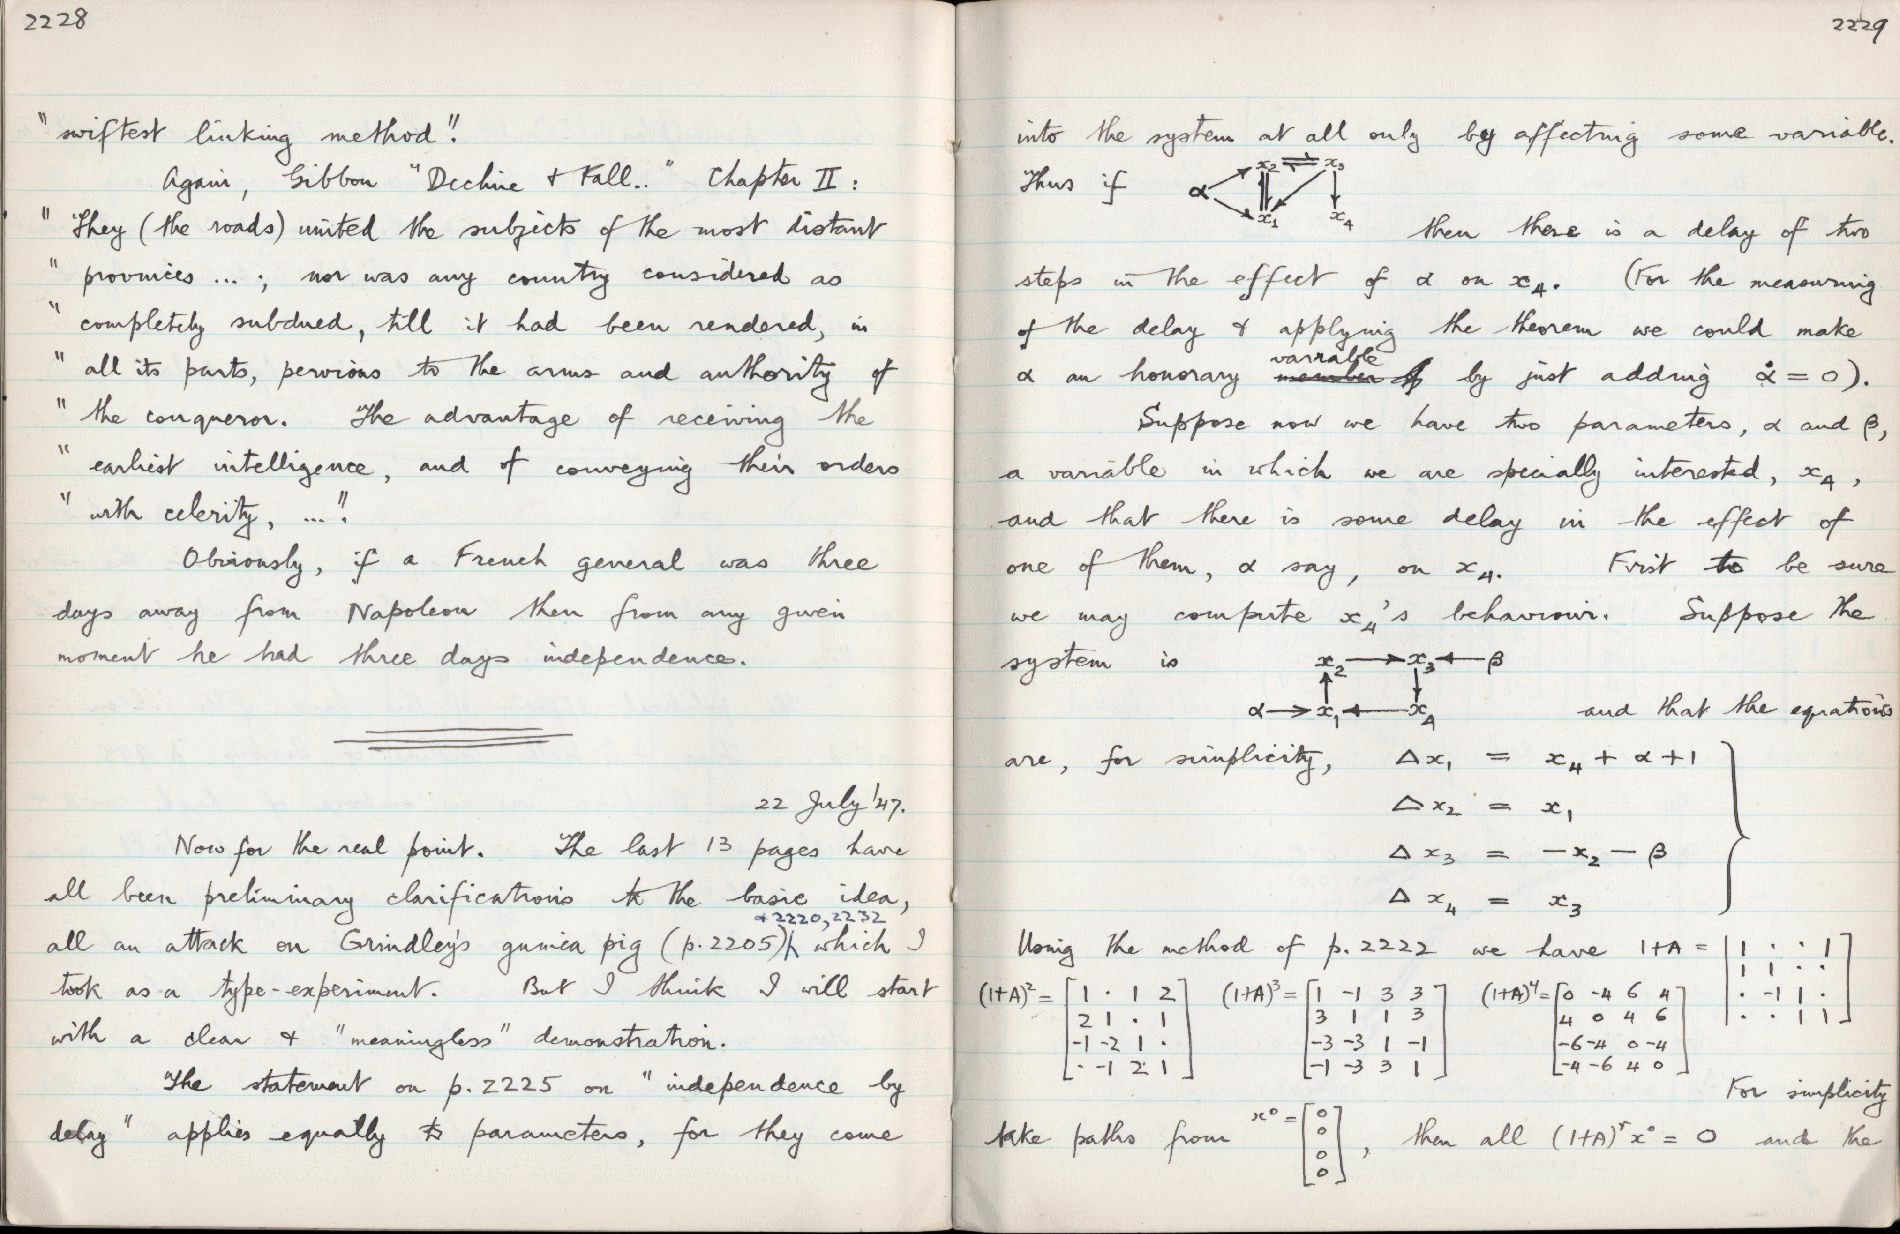 2228
"swiftest linking method".
Again, Gibbon "Decline & Fall.." Chapter II:
"They (the roads) united the subjects of the most distant
"provinces ...; nor was any country considered as
"completely subdued, till it had been rendered, in
"all its parts, pervious to the arms and authority of
"the conqueror. The advantage of receiving the
"earliest intelligence, and of conveying their orders
"with celerity, ...".
Obviously, if a French general was three
days away from Napoleon then from any given
moment he had three days independence.
22 July '47.
Now for the real point. The last 13 pages have
all been preliminary clarifications to the basic idea,
& 2220, 2232
all an attack on Grindley's guinea pig (p. 2205) which I
took as a type-experiment. But I think I will start
with a clear & "meaningless" demonstration.
The statement on p. 2225 on "independence by
delay" applies equally to parameters, for they come
2229
into the system at all only by affecting some variable.
Thus if α x₂ x₃ x₁ x₄
then there is a delay of two
steps in the effect of α on x₄. (For the measuring
of the delay & applying the theorem we could make
variable
α an honorary member of by just adding α̇ = 0).
Suppose now we have two parameters, α and β,
a variable in which we are specially interested, x₄,
and that there is some delay in the effect of
one of them, α say, on x₄. First to be sure
we may compute x₄'s behaviour. Suppose the
system is x₂ → x₃ ← β
α → x₁ ← x₄ and that the equations
are, for simplicity, Δx₁ = x₄ + α + 1
Δx₂ = x₁
Δx₃ = -x₂ - β
Δx₄ = x₃
Using the method of p. 2222 we have 1+A = [1 · · 1
1 1 · ·
· -1 1 ·
· · 1 1]
(1+A)² = [1 · 1 2
2 1 · 1
-1 -2 1 ·
· -1 2 1]
(1+A)³ = [1 -1 3 3
3 1 1 3
-3 -3 1 -1
-1 -3 3 1]
(1+A)⁴ = [0 -4 6 4
4 0 4 6
-6 -4 0 -4
-4 -6 4 0]
For simplicity
take paths from x⁰ = [0
0
0
0], then all (1+A)ʳx⁰ = 0 and the